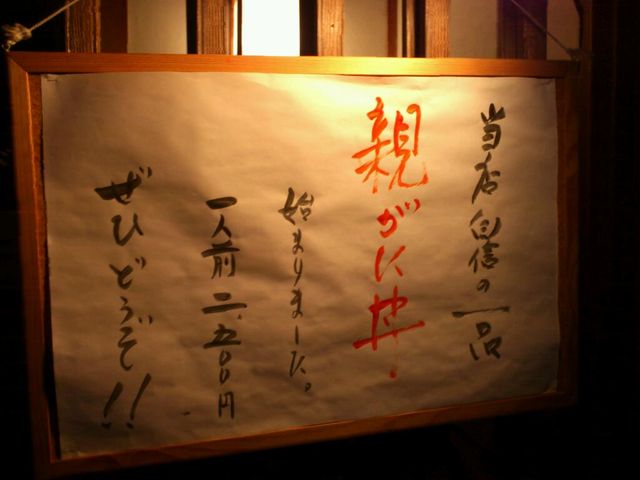 当店自信の一品
親がに丼!
始まりました。
一人前二、五〇〇円
ぜひどうぞ!!